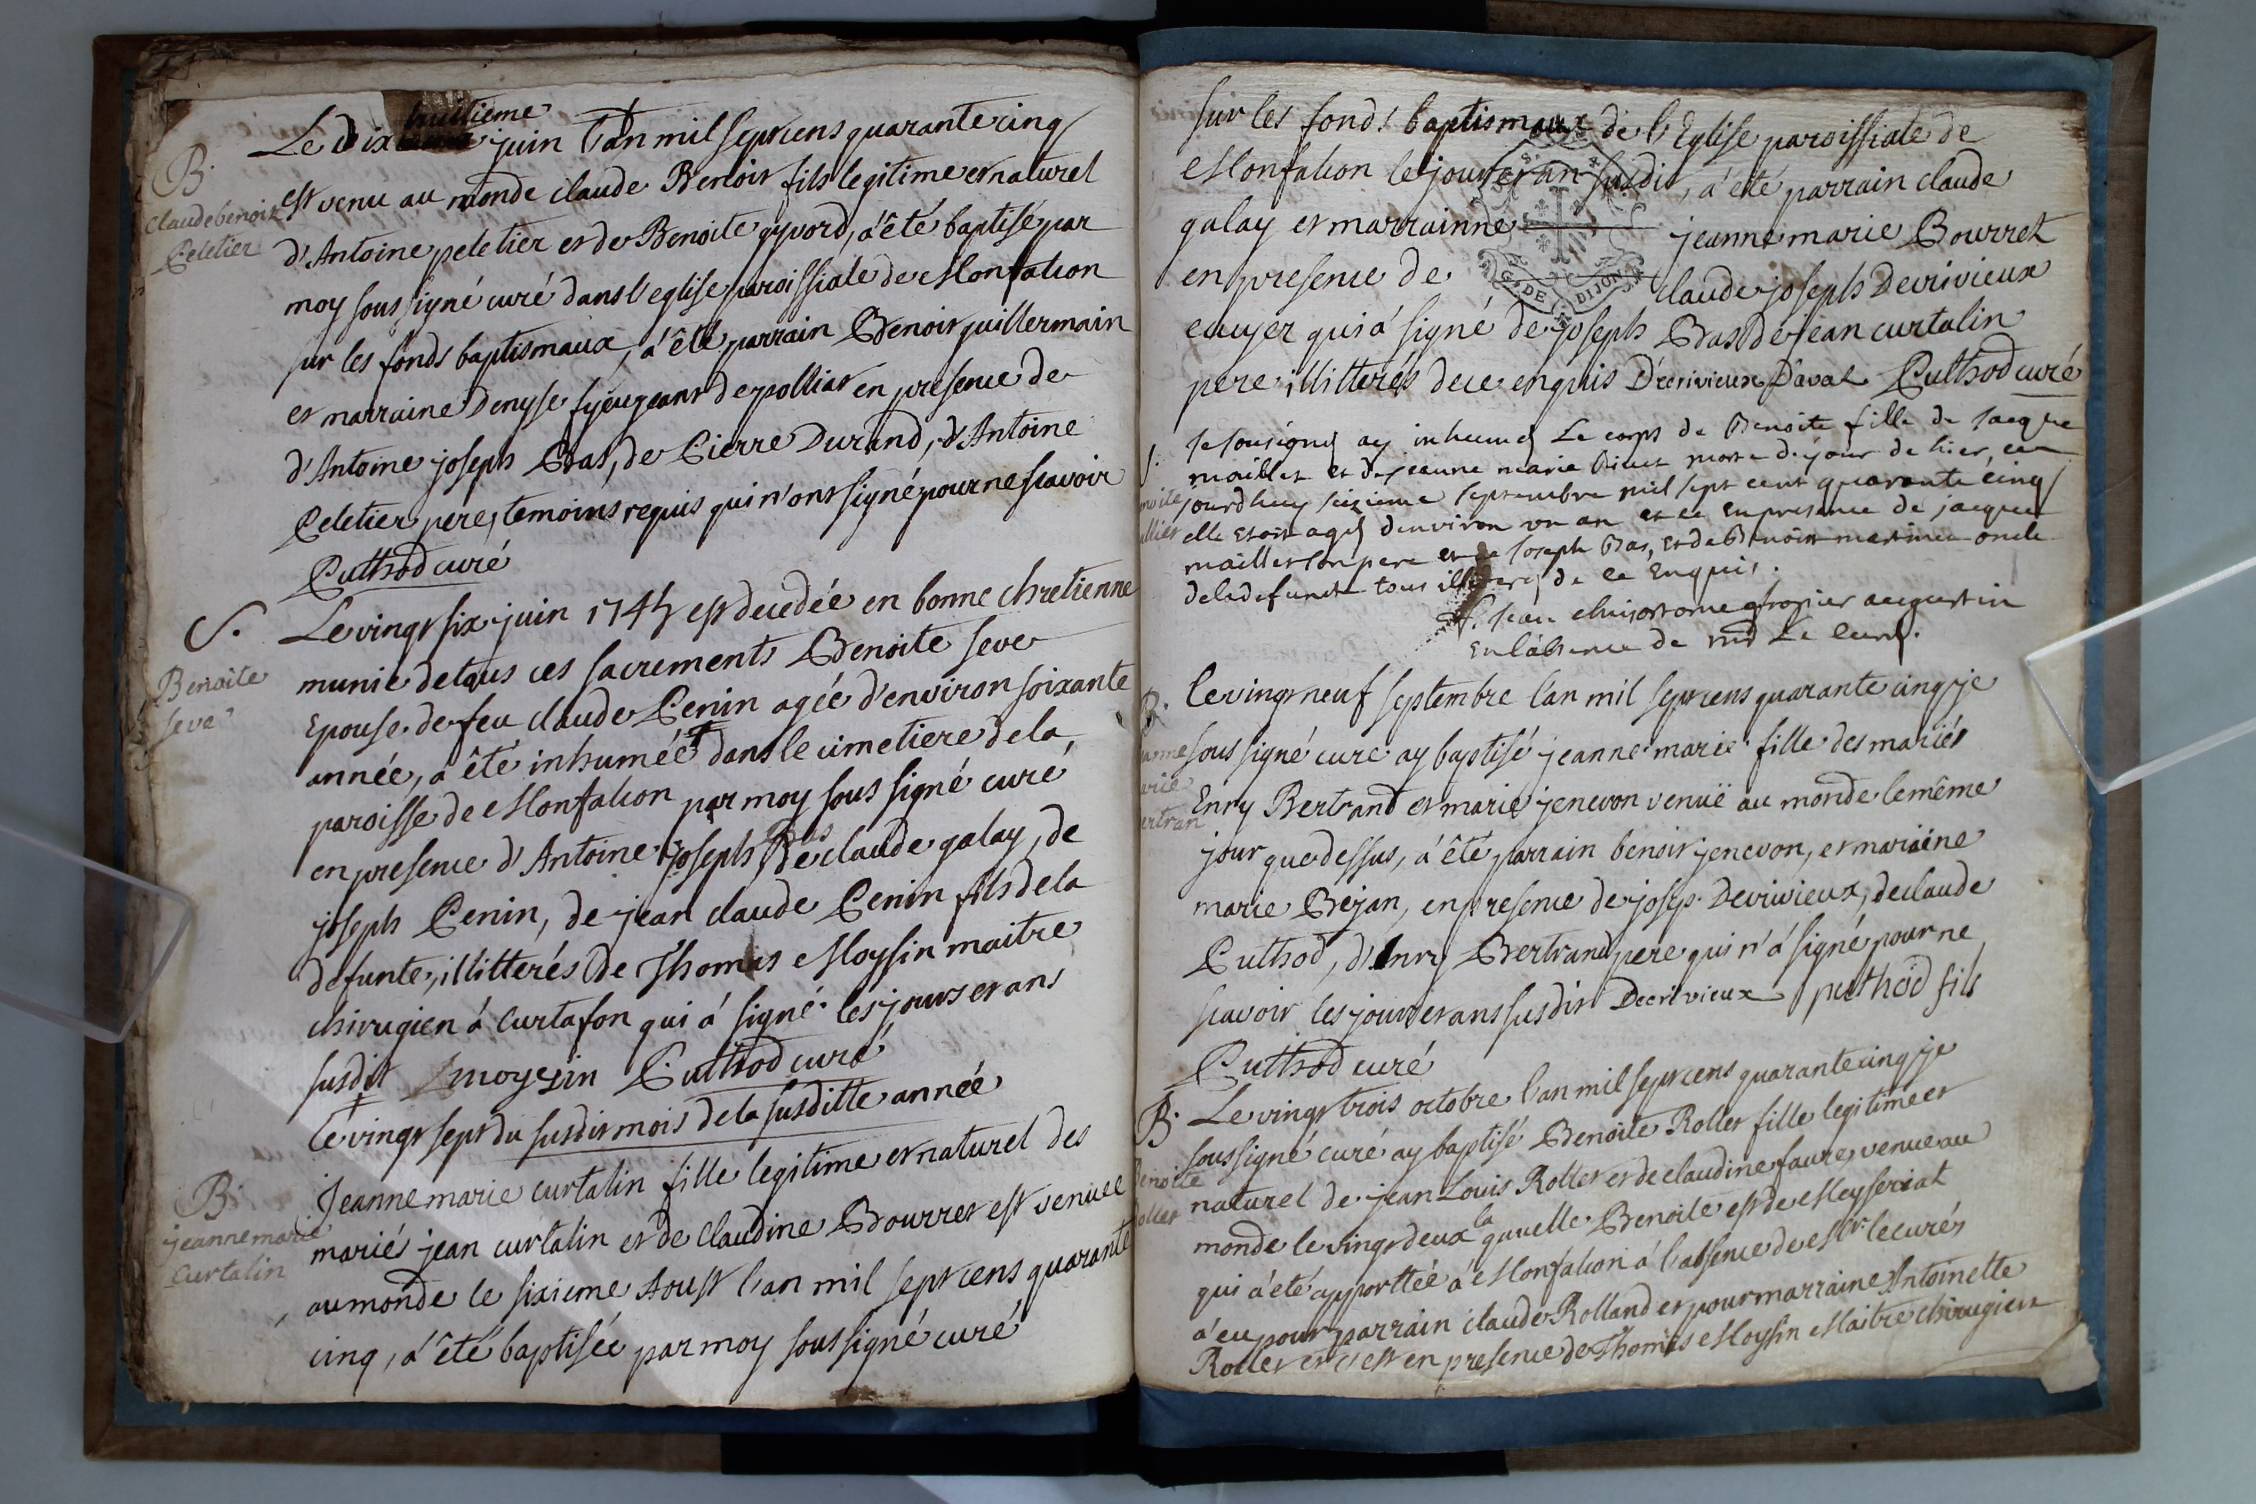 B.
Claude benoit
Peletier
Le Dix huitieme juin l'an mil sept cens quarante cinq
est venu au monde claude Benoit fils legitime et naturel
d'Antoine peletier et de Benoite gyvord, a été baptisé par
moy sous signé curé dans l'eglise paroissiale de Monfalcon
sur les fonds baptismaux, a été parrain Benoit guillermain
et marraine Denyse de polliat en presence de
d'Antoine joseph Bas, de Pierre Durand, d'Antoine
Peletier pere, temoins requis qui n'ont signé pour ne scavoir
Puthod curé
S.
Benoite
seve
Le vingt six juin 1745 est decedée en bonne chretienne
munie de tous ces sacrements Benoite seve
Epouse de feu claude Penin agée d'environ soixante
année, a été inhumée dans le cimetiere de la
paroisse de Monfalcon par moy sous signé curé
en presence d'Antoine joseph Bas de claude galay, de
joseph Penin, de jean claude Penin fils de la
defunte, illitterés de Thomas Moysin maitre
chirugien á Curtafon qui á signé les jours et ans
susdit moyzin Puthod curé
Le vingt sept du susdit mois de la susditte année
B.
jeanne marie
Curtalin
Jeanne marie curtalin fille legitime et naturel des
marié jean curtalin et de Claudine Bourret est venuee
au monde le sixieme Aoust l'an mil sept cens quarante
cinq, á été baptisée par moy sous signé curé
sur les fonds baptismaux de l'Eglise paroissiale de
Monfalcon le jour et an susdit, a été parrain claude
galay et marrainne jeanne marie Bourret
en presence de claude joseph Decrivieux
ecuyer qui á signé de joseph Bas de jean curtalin
pere illitterés de ce enquis Decrivieux Daval Puthod curé
G. DE DIJON
S.
Je sousigné ay inhumé Le corps de Benoite fille de Jacque
maillet et de jeanne marie morte du jour de hier, ce
jourdhuy seizieme septembre mil sept cent quarante cinq
elle etoit agé d'environ un an et ce en presence de jacque
maillet son pere et de Joseph Bas, et de Benoit oncle
de la defunte tous illiterés de ce Enquis.
f. Jean chrisostome augustin
En l'absence de mr Le curé.
B.
Le vingt neuf septembre l'an mil sept cens quarante cinq je
sous signé curé ay baptisé jeanne marie fille des mariés
Enry Bertrand et marie jenevon venuë au monde le même
jour que dessus, á été parrain benoit jenevon, et maraine
marie Bejan, en presence de josep. Decrivieux, de claude
Puthod, d'Enry Bertrand pere qui n'á signé pour ne
scavoir les jour et ans susdit Decrivieux puthod fils
Puthod curé
B.
Le vingt trois octobre l'an mil sept cens quarante cinq je
sous signé curé ay baptisé Benoite Rollet fille legitime et
naturel de jean Louis Rollet et de claudine faure, venue au
monde le vingt deux la quelle Benoite est de Meyseriat
qui á été apporttée á Monfalcon á l'absence de Mr le curés
á eu pour parrain claude Rolland et pour marraine Antoinette
Rollet et c'est en presence de Thomas Moysin Maitre chirugien